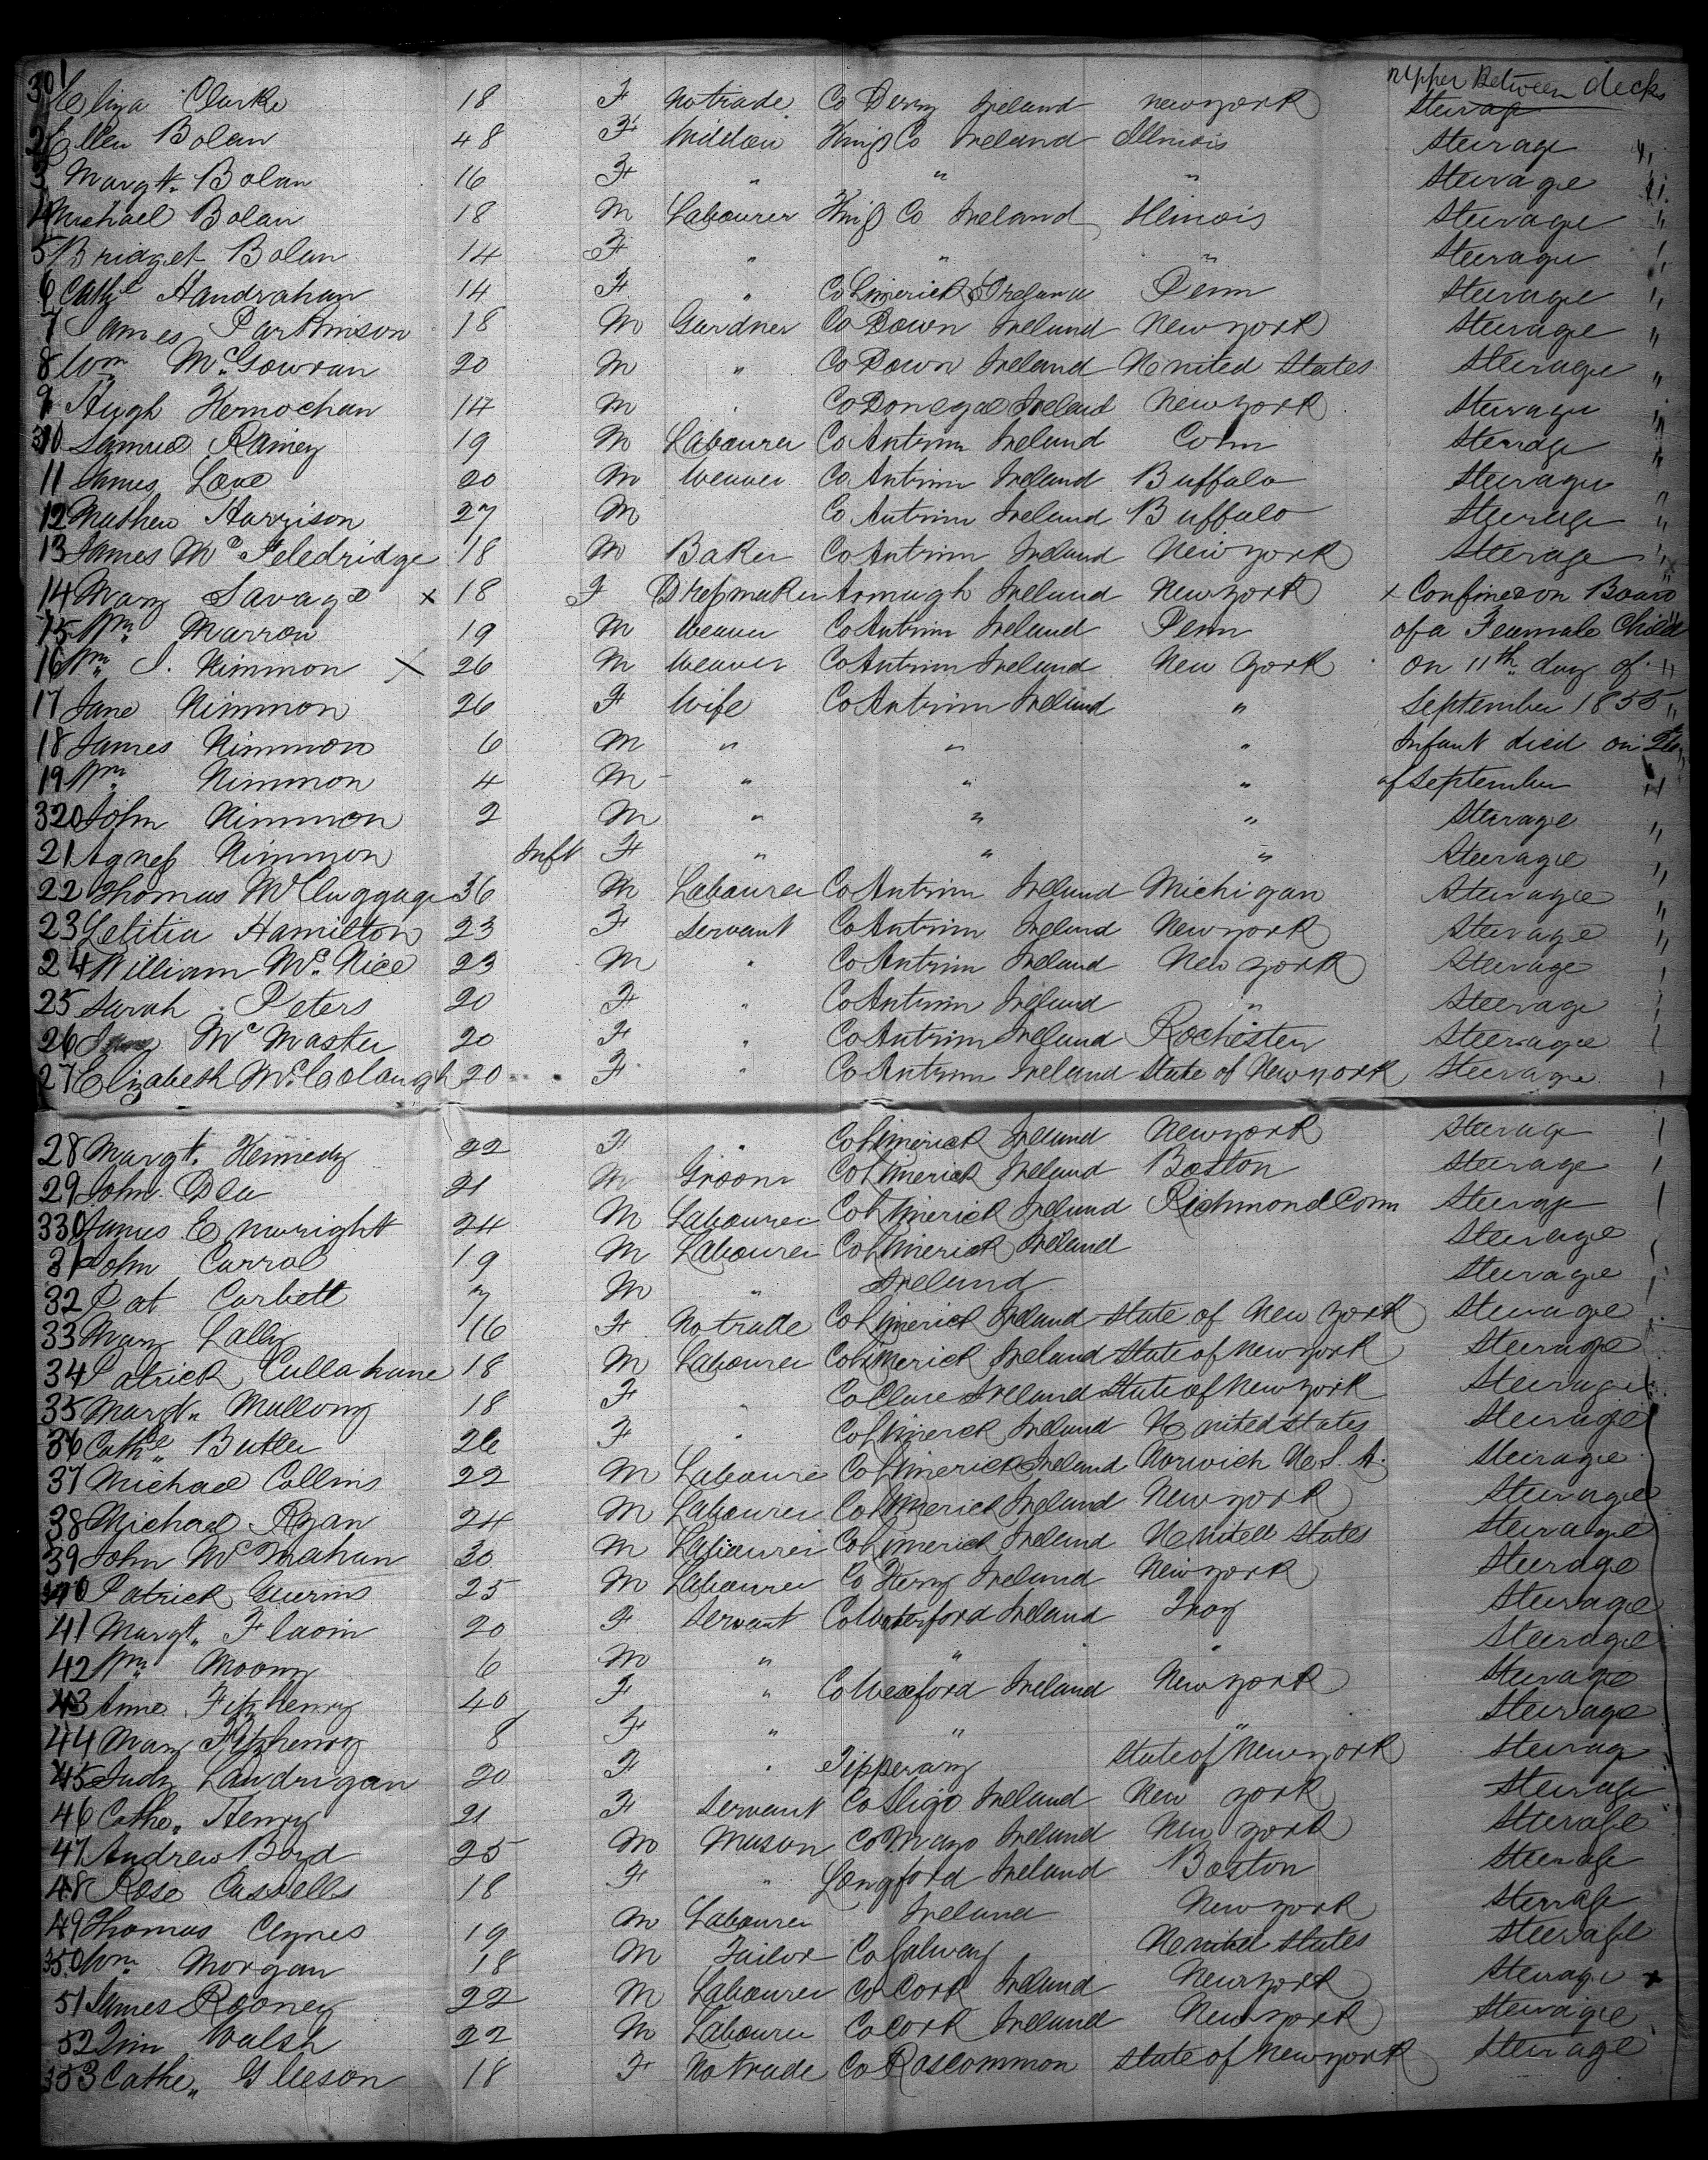 Upper Between decks
301 Eliza Clarke 18 F No trade Co Derry Ireland New york Steerage
2 Ellen Bolan 48 F Widdow Kings Co Ireland Illinois Steerage "
3 Margt. Bolan 16 F " " " Steerage "
4 Michael Bolan 18 M Labourer Kings Co Ireland Illinois Steerage "
5 Bridget Bolan 14 F " " " Steerage "
6 Cathe Handrahan 14 F " Co Limerick Ireland Penn Steerage "
7 James Parkinson 18 M Gardner Co Down Ireland New york Steerage "
8 Wm McGowran 20 M " Co Down Ireland United States Steerage "
9 Hugh Kernochan 14 M " Co Donegal Ireland New york Steerage "
310 Samuel Rainey 19 M Labourer Co Antrim Ireland Conn Steerage "
11 James Love 20 M Weaver Co Antrim Ireland Buffalo Steerage "
12 Mathew Harrison 27 M Co Antrim Ireland Buffalo Steerage "
13 James Mc Feledridge 18 M Baker Co Antrim Ireland New york Steerage "
14 Mary Savage x 18 F Dressmaker Armagh Ireland New york x Confined on Board
15 Wm Marron 19 M Weaver Co Antrim Ireland Penn of a Feamale Child
16 Wm J. Nimmon x 26 M Weaver Co Antrim Ireland New York on 11th day of "
17 Jane Nimmon 26 F Wife Co Antrim Ireland " September 1855 "
18 James Nimmon 6 M " " " Infant died on
19 Wm Nimmon 4 M " " " of September "
320 John Nimmon 2 M " " " Steerage "
21 Agness Nimmon Inft F " " " Steerage "
22 Thomas McCluggage 36 M Labourer Co Antrim Ireland Michigan Steerage "
23 Letitia Hamilton 23 F Servant Co Antrim Ireland New york Steerage "
24 William Mc Nice 23 M " Co Antrim Ireland New york Steerage "
25 Sarah Peters 20 F " Co Antrim Ireland " Steerage "
26 Mc Master 20 F " Co Antrim Ireland Rochester Steerage "
27 Elizabeth McColaugh 20 F " Co Antrim Ireland State of New york Steerage "
28 Margt. Kennedy 22 F " Co Limerick Ireland New york Steerage
29 John Dea 21 M Groom Co Limerick Ireland Boston Steerage
330 James Enwright 24 M Labourer Co Limerick Ireland Richmond Conn Steerage
31 John Carrol 19 M Labourer Co Limerick Ireland Steerage
32 Pat Corbett 7 M " Ireland Steerage
33 Mary Lally 16 F No trade Co Limerick Ireland State of New york Steerage
34 Patrick Cullahane 18 M Labourer Co Limerick Ireland State of New york Steerage
35 Margt. Mullony 18 F " Co Clare Ireland State of New york Steerage
36 Cathe. Butler 26 F " Co Limerick Ireland United States Steerage
37 Michael Collins 22 M Labourer Co Limerick Ireland Norwich U.S.A. Steerage
38 Michael Ryan 24 M Labourer Co Limerick Ireland New york Steerage
39 John McMahan 30 M Labourer Co Limerick Ireland United States Steerage
340 Patrick Guerins 25 M Labourer Co Kerry Ireland New york Steerage
41 Margt. Flaoin 20 F Servant Co Waterford Ireland Troy Steerage
42 Wm Moony 6 M " " " Steerage
43 Anne Fitzhenry 40 F " Co Wexford Ireland New york Steerage
44 Mary Fitzhenry 8 F " " " Steerage
45 Judy Landrigan 20 F " Tipperary State of New york Steerage
46 Cathe. Henry 21 F Servant Co Sligo Ireland New york Steerage
47 Andrew Boyd 25 M Mason Co Mayo Ireland New york Steerage
48 Rose Cassells 18 F " Longford Ireland Boston Steerage
49 Thomas Clynes 19 M Labourer Ireland New york Steerage
350 Wm. Morgan 18 M Tailor Co Galway United States Steerage
51 James Rooney 22 M Labourer Co Cork Ireland New york Steerage
52 Tim Walsh 22 M Labourer Co Cork Ireland New york Steerage
353 Cathe. Gleeson 18 F No trade Co Roscommon State of New york Steerage